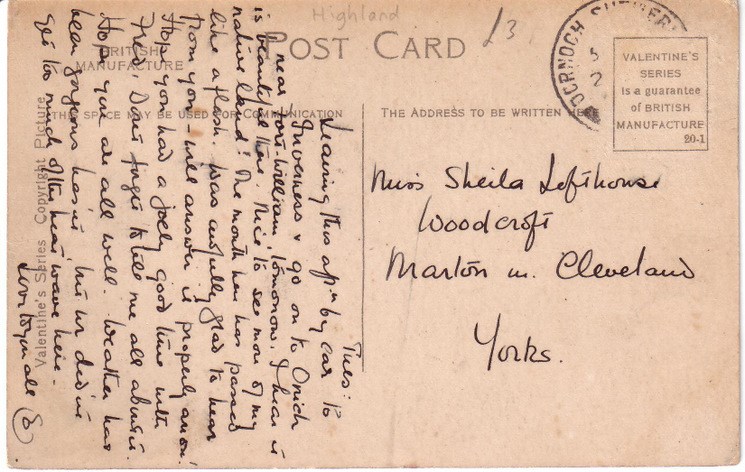 Highland
£3
POST CARD
BRITISH
MANUFACTURE
DORNOCH SUTHERL
5
2
VALENTINE'S
SERIES
is a guarantee
of BRITISH
MANUFACTURE
20-1
THIS SPACE MAY BE USED FOR COMMUNICATION
THE ADDRESS TO BE WRITTEN HERE
Valentine's Series. Copyright Picture.
Tues:
Leaving this aftn by car to
Inverness & go on to Onich
near Fort-William, tomorrow. I hear it
is beautiful there. Nice to see more of my
native land! The month here has passed
like a flash. Was awfully glad to hear
from you – will answer it properly anon.
Hope you had a jolly good time with
Fred. Don't forget to tell me all about it.
Hope you are all well. Weather has
been gorgeous hasn't it but we did not
get too much of the heat wave here.
Love to you all
Miss Sheila Lofthouse
Woodcroft
Marton in Cleveland
Yorks.